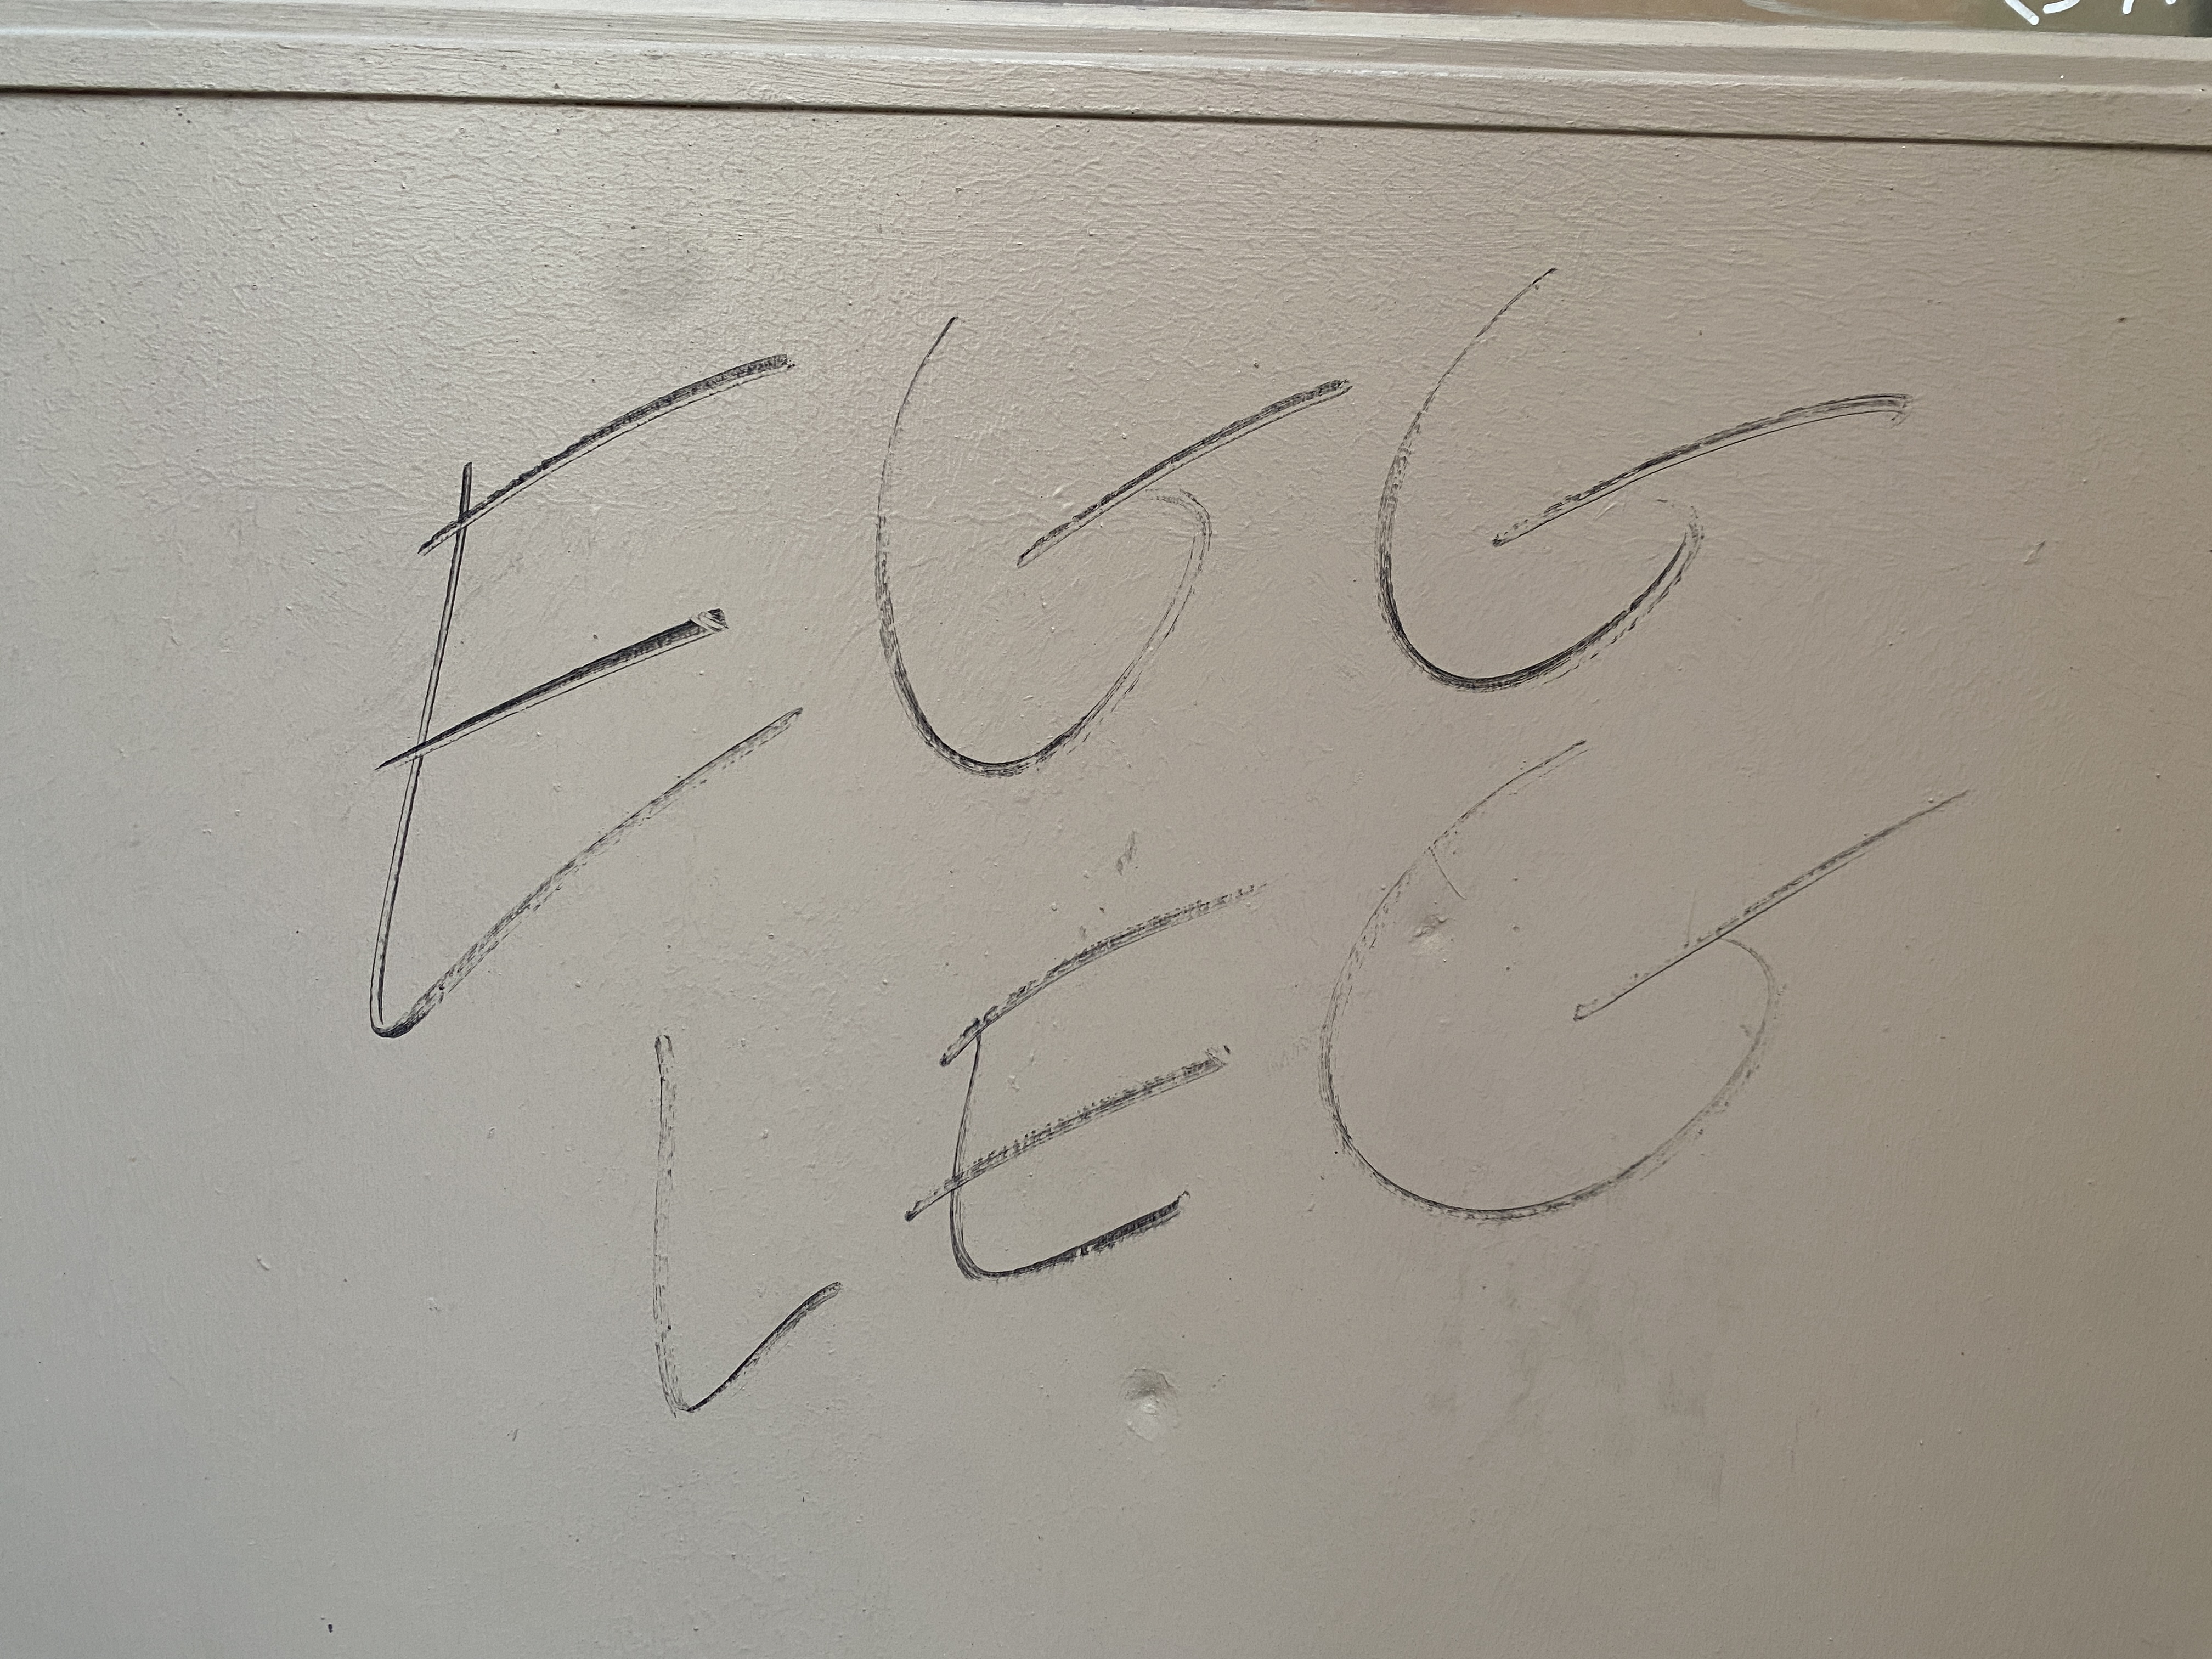 EGG
LEG